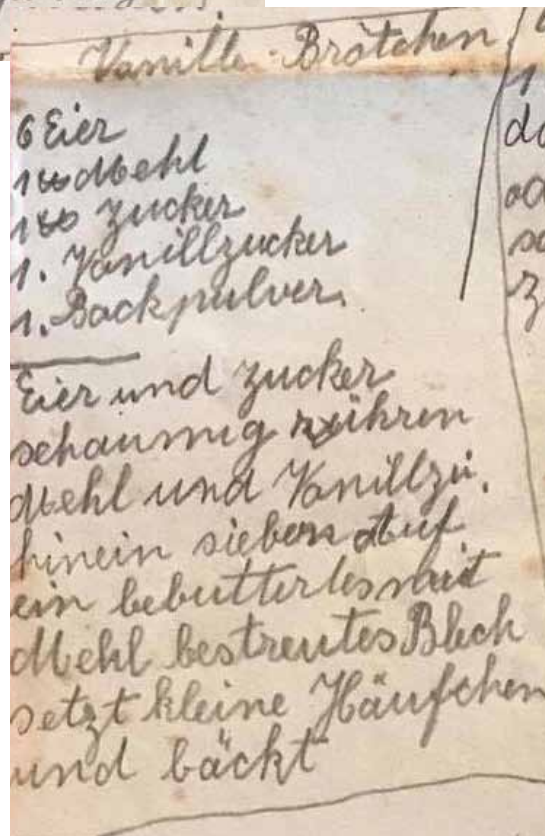 Vanille-Brötchen
6 Eier
1 ℔ Mehl
1 ℔ Zucker
1. Vanillzucker
1. Backpulver.
Eier und Zucker
schaumig rühren
Mehl und Vanillzu.
hinein sieben Auf
ein bebuttertes mit
Mehl bestreutes Blech
setzt kleine Häufchen
und bäckt